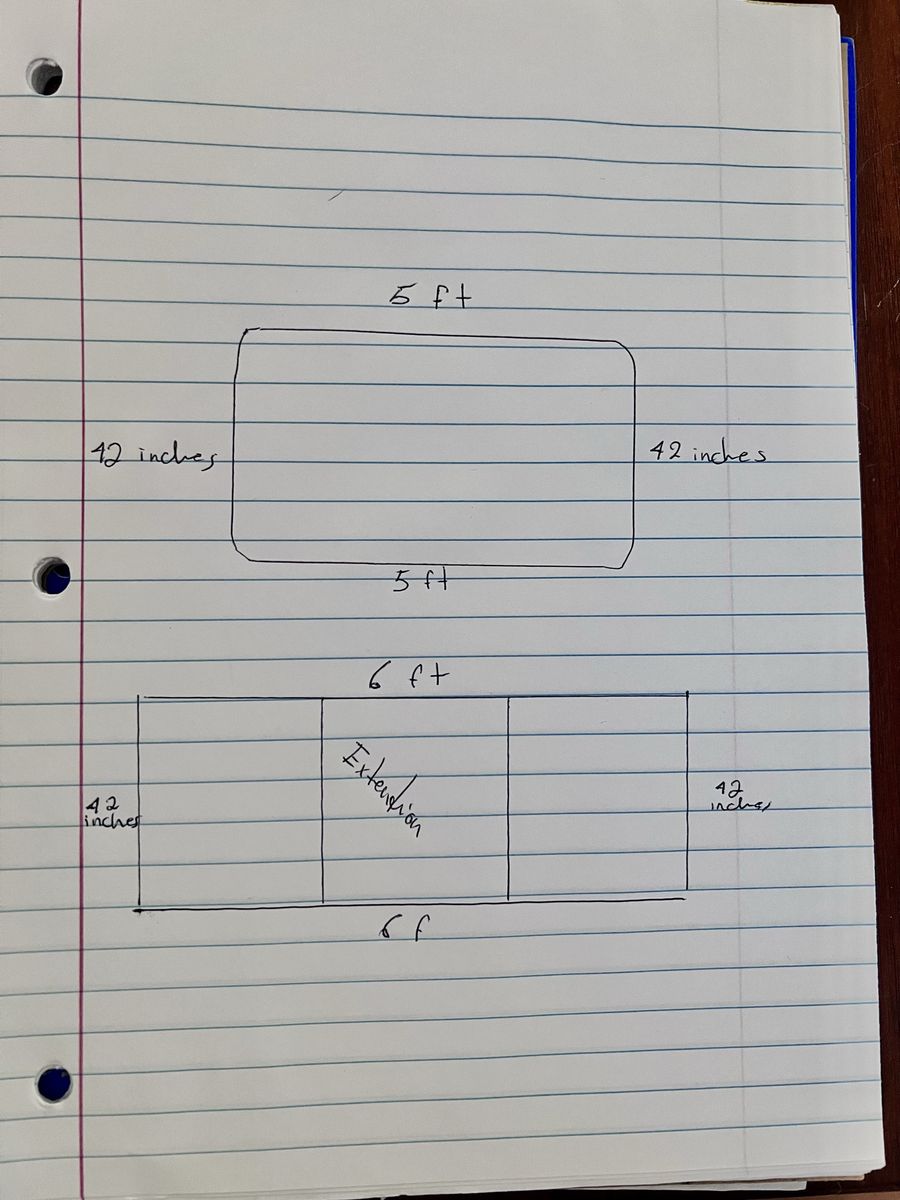 5 ft
42 inches
42 inches
5 ft
6 ft
Extension
42
inches
42
inches
6 f